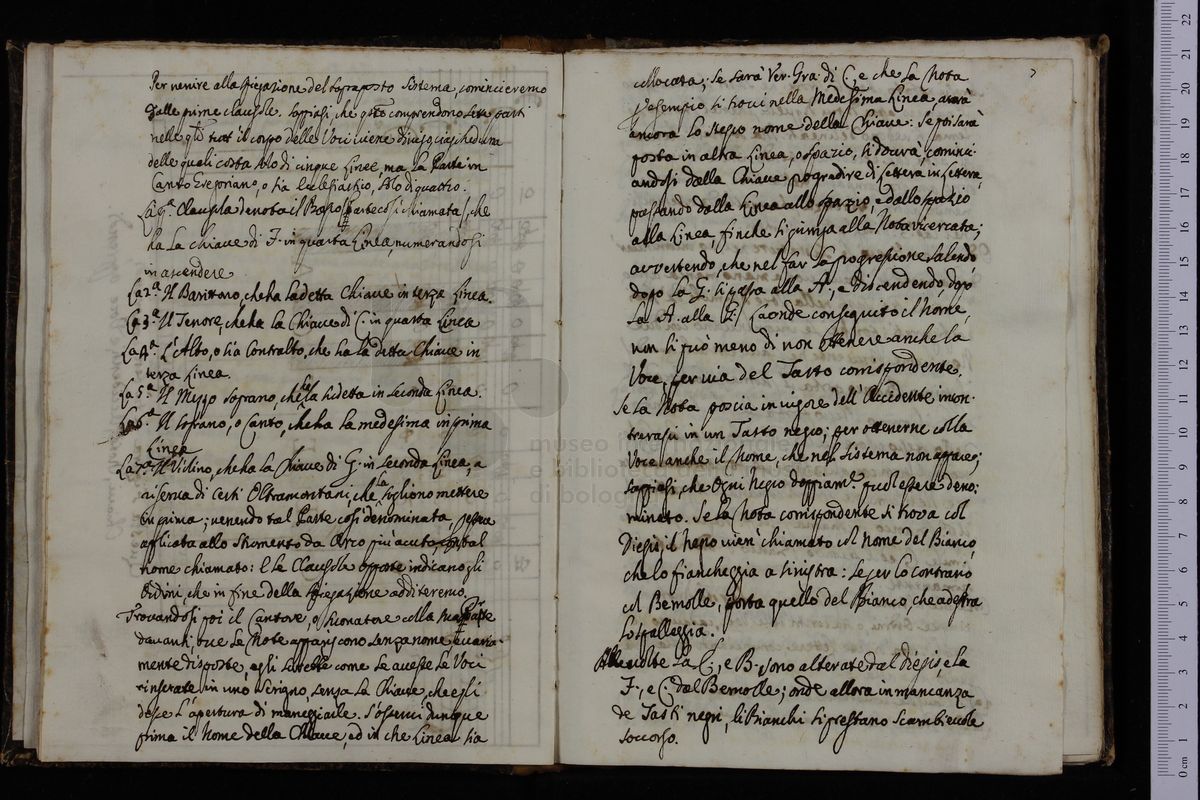 Per venire alla spiegazione del soprаposto sistema, comincieremo
dalle prime clausole. Sappiasi, che queste comprendono sette parti
nelle qli trat il corpo delle Voci viene diviso, ciascheduna
delle quali costa solo di cinque Linee, ma la Parte in
Canto Gregoriano, o sia Eclesiastico, solo di quattro.
La p.ª Clausola denota il Basso (parte così chiamata), che
ha la chiave di F. in quarta Linea, numerandosi
in ascendere
La 2.ª Il Baritono, che ha la detta Chiave in terza Linea.
La 3.ª Il Tenore, che ha la Chiave di C. in quarta Linea
La 4.ª L'Alto, o sia Contralto, che ha la detta Chiave in
terza Linea.
La 5.ª Il Mezzo Soprano, che la sudetta in seconda Linea.
La 6.ª Il Soprano, o Canto, che ha la medesima in prima
Linea
La 7.ª Il Violino, che ha la Chiave di G. in seconda Linea, a
riserva di certi Oltramontani, che la sogliono mettere
in prima; venendo tal Parte così denominata, per
applicata allo Stromento da Arco più acuto, tal
nome chiamato: e le Clausole indicano gli
Ordini, che in fine della spiegazione additeremo.
Trovandosi poi il Cantore, o Suonatore colla Parte
davanti, ove le Note appariscono senza nome, e varia-
mente disposte, egli sarebbe come se avesse le Voci
rinserate in uno scrigno, senza la Chiave, che egli
desse l'apertura di maneggiarle. S'osservi dunque
prima il Nome della Chiave, ed in che Linea sia
7
collocata; se sarà Ver. Gra. di C, e che la Nota
p esempio si trovi nella Medesima Linea, avrà
ancora lo stesso nome della Chiave: Se poi sarà
posta in altra Linea, o spazio, si dovrà, cominci-
andosi dalla Chiave progredire di Lettera in Lettera,
passando dalla Linea allo spazio, e dallo spazio
alla Linea, finche si giunga alla Nota ricercata;
avvertendo, che nel far la progressione salendo
dopo la G. si passa alla A, e discendendo, dopo
la A. alla G./ Laonde conseguito il Nome,
non si può meno di non ottenere anche la
Voce, per via del Tasto corrispondente.
Se la Nota poscia in vigore dell'Accidente incon-
trerassi in un Tasto negro; per ottenerne colla
Voce anche il Nome, che nel sistema non appare;
sappiasi, che Ogni Negro doppiam.e può essere deno:
minato. Se la Nota corrispondente si trova col
Diesis, il Negro vien' chiamato col Nome del Bianco,
che lo fiancheggia a sinistra: se per lo contrario
col Bemolle, porta quello del Bianco, che a destra
lo spalleggia.
Alle volte la E, e B. sono alterate dal Diesis, e la
F., e C. dal Bemolle; onde allora in mancanza
de Tasti negri, li Bianchi si prestano scambievole
soccorso.
museo
e biblio
di bolo